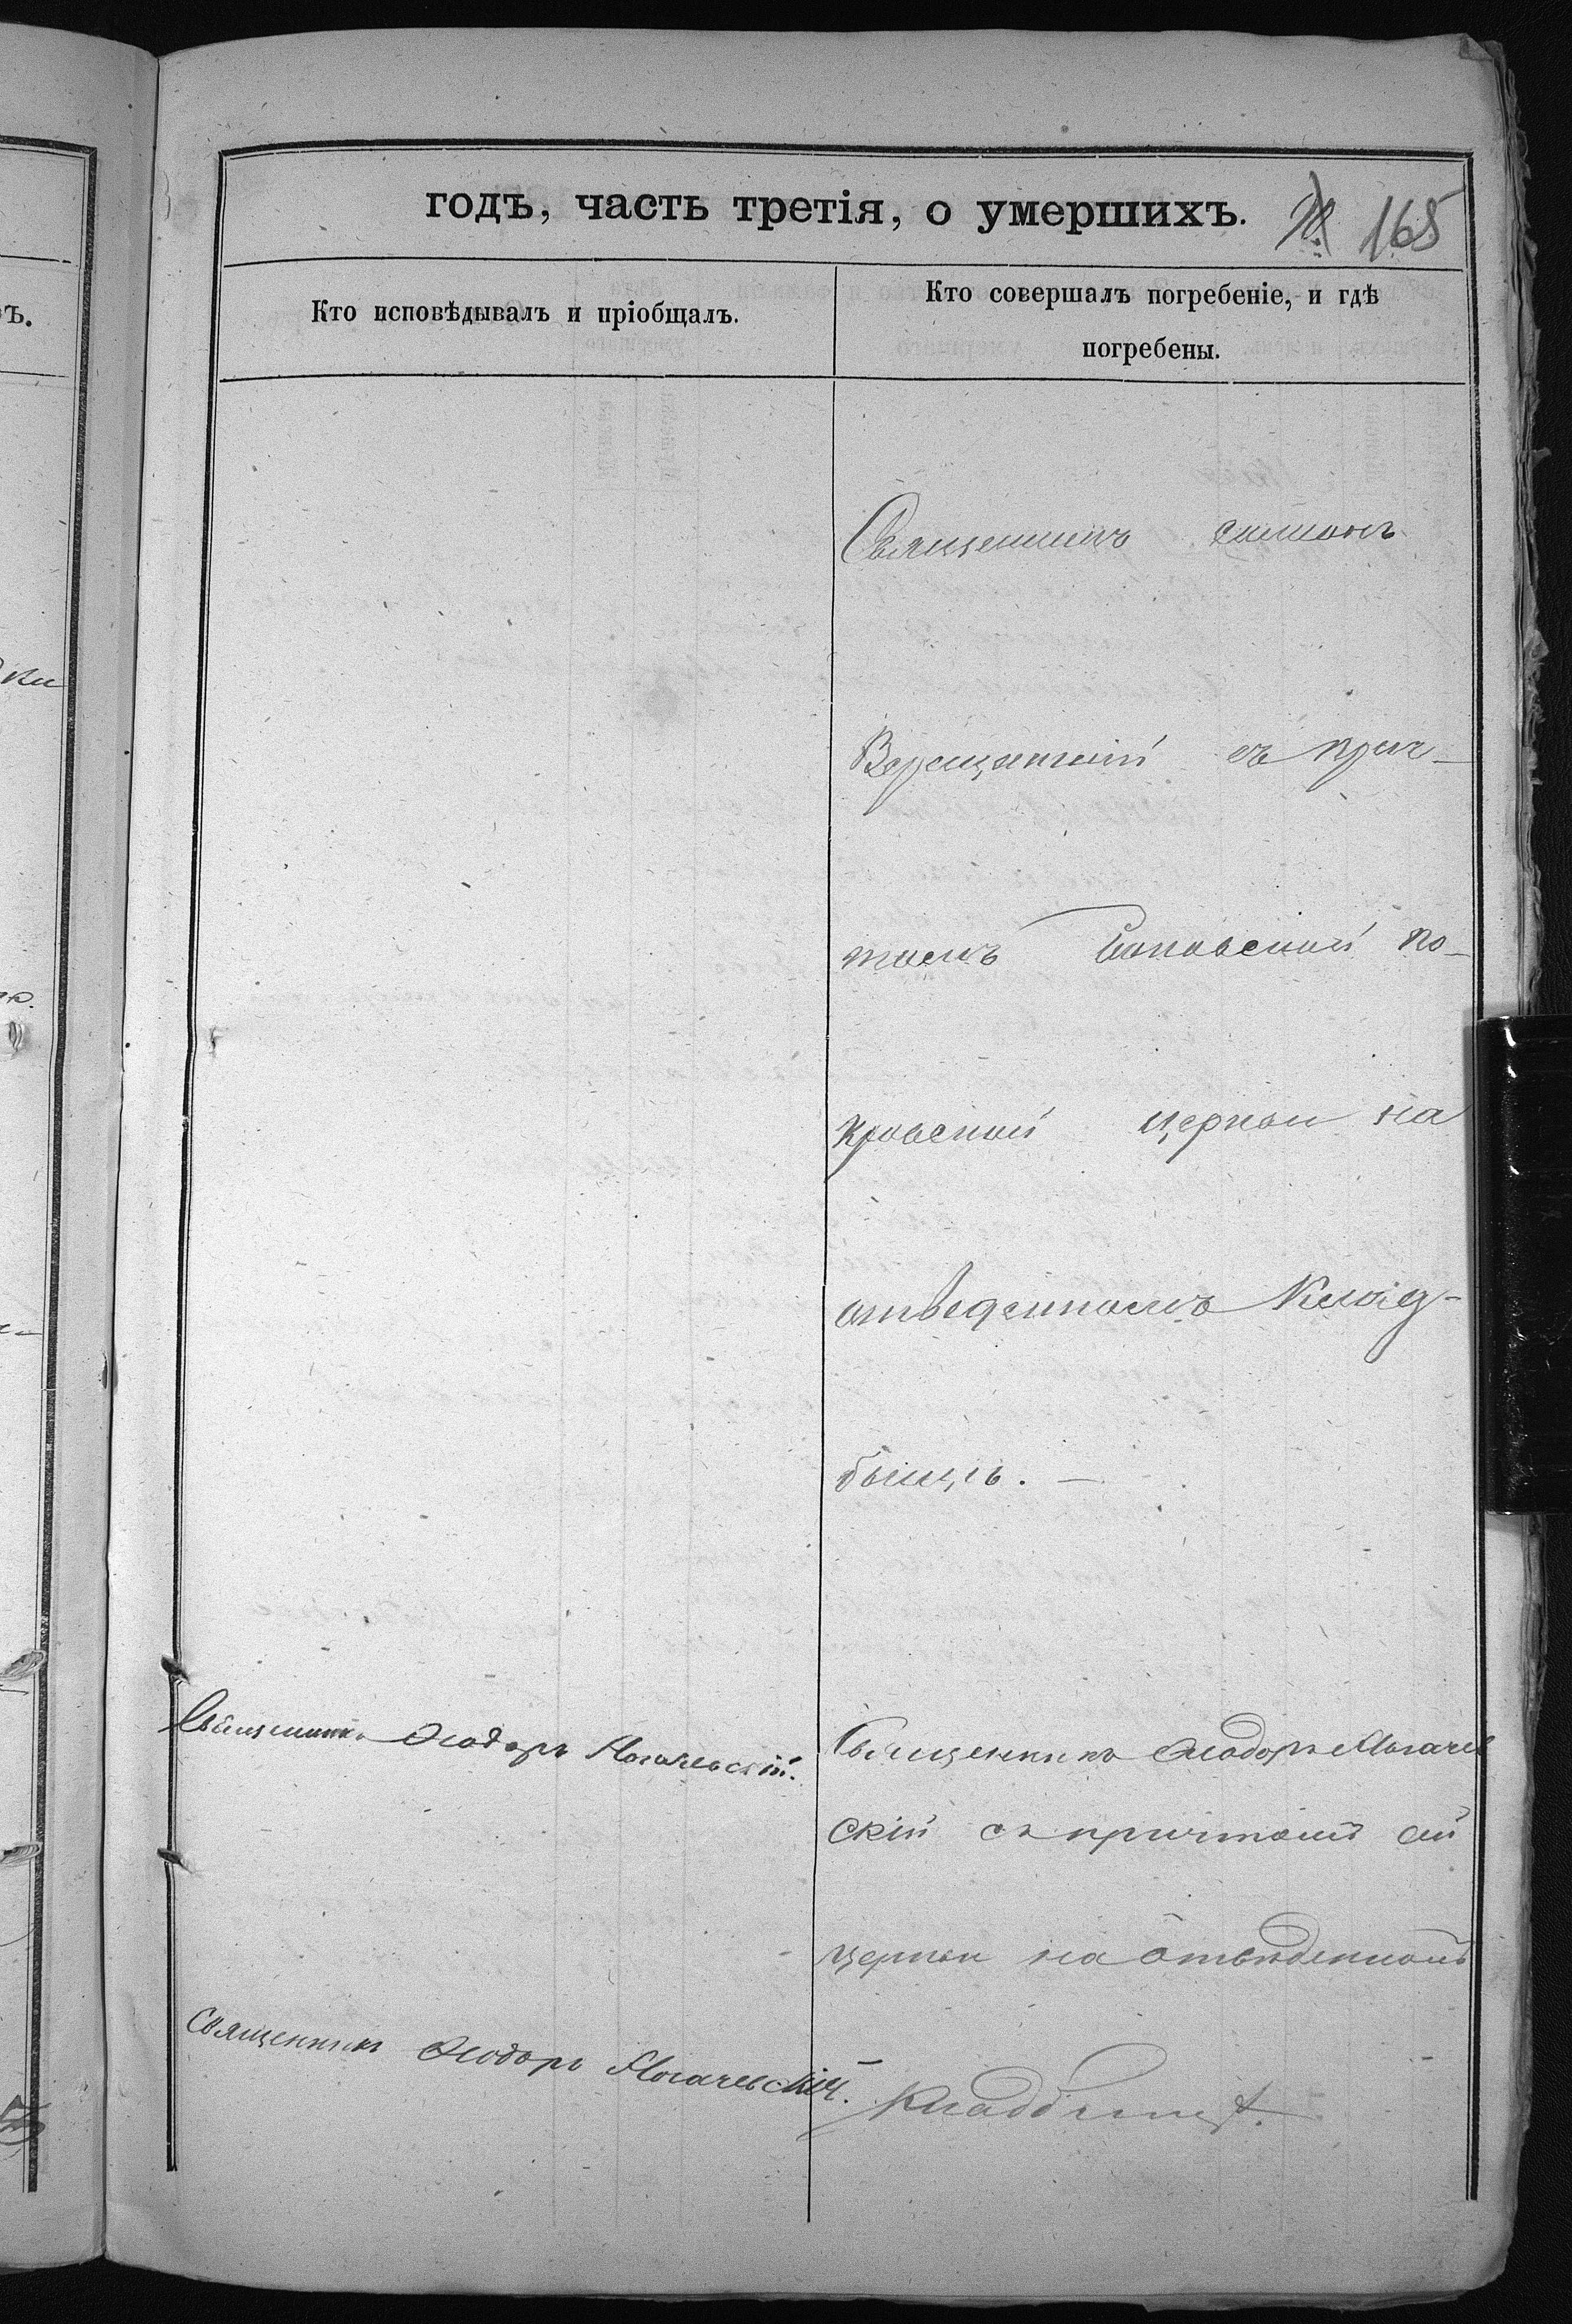 годъ, часть третія, о умершихъ.
165
Кто исповѣдывалъ и пріобщалъ.
Кто совершалъ погребеніе, и гдѣ
погребены.
Священникъ Симеонъ
Верещацкій съ прич-
томъ По-
кровской церкви на
отведенномъ клад-
бищѣ. —
Священникъ Ѳеодоръ Могачевскій.
Священникъ Ѳеодоръ Могачев
скій съ причтомъ сей
церкви на отведенномъ
Священникъ Ѳеодоръ Могачевскій.
кладбищѣ.